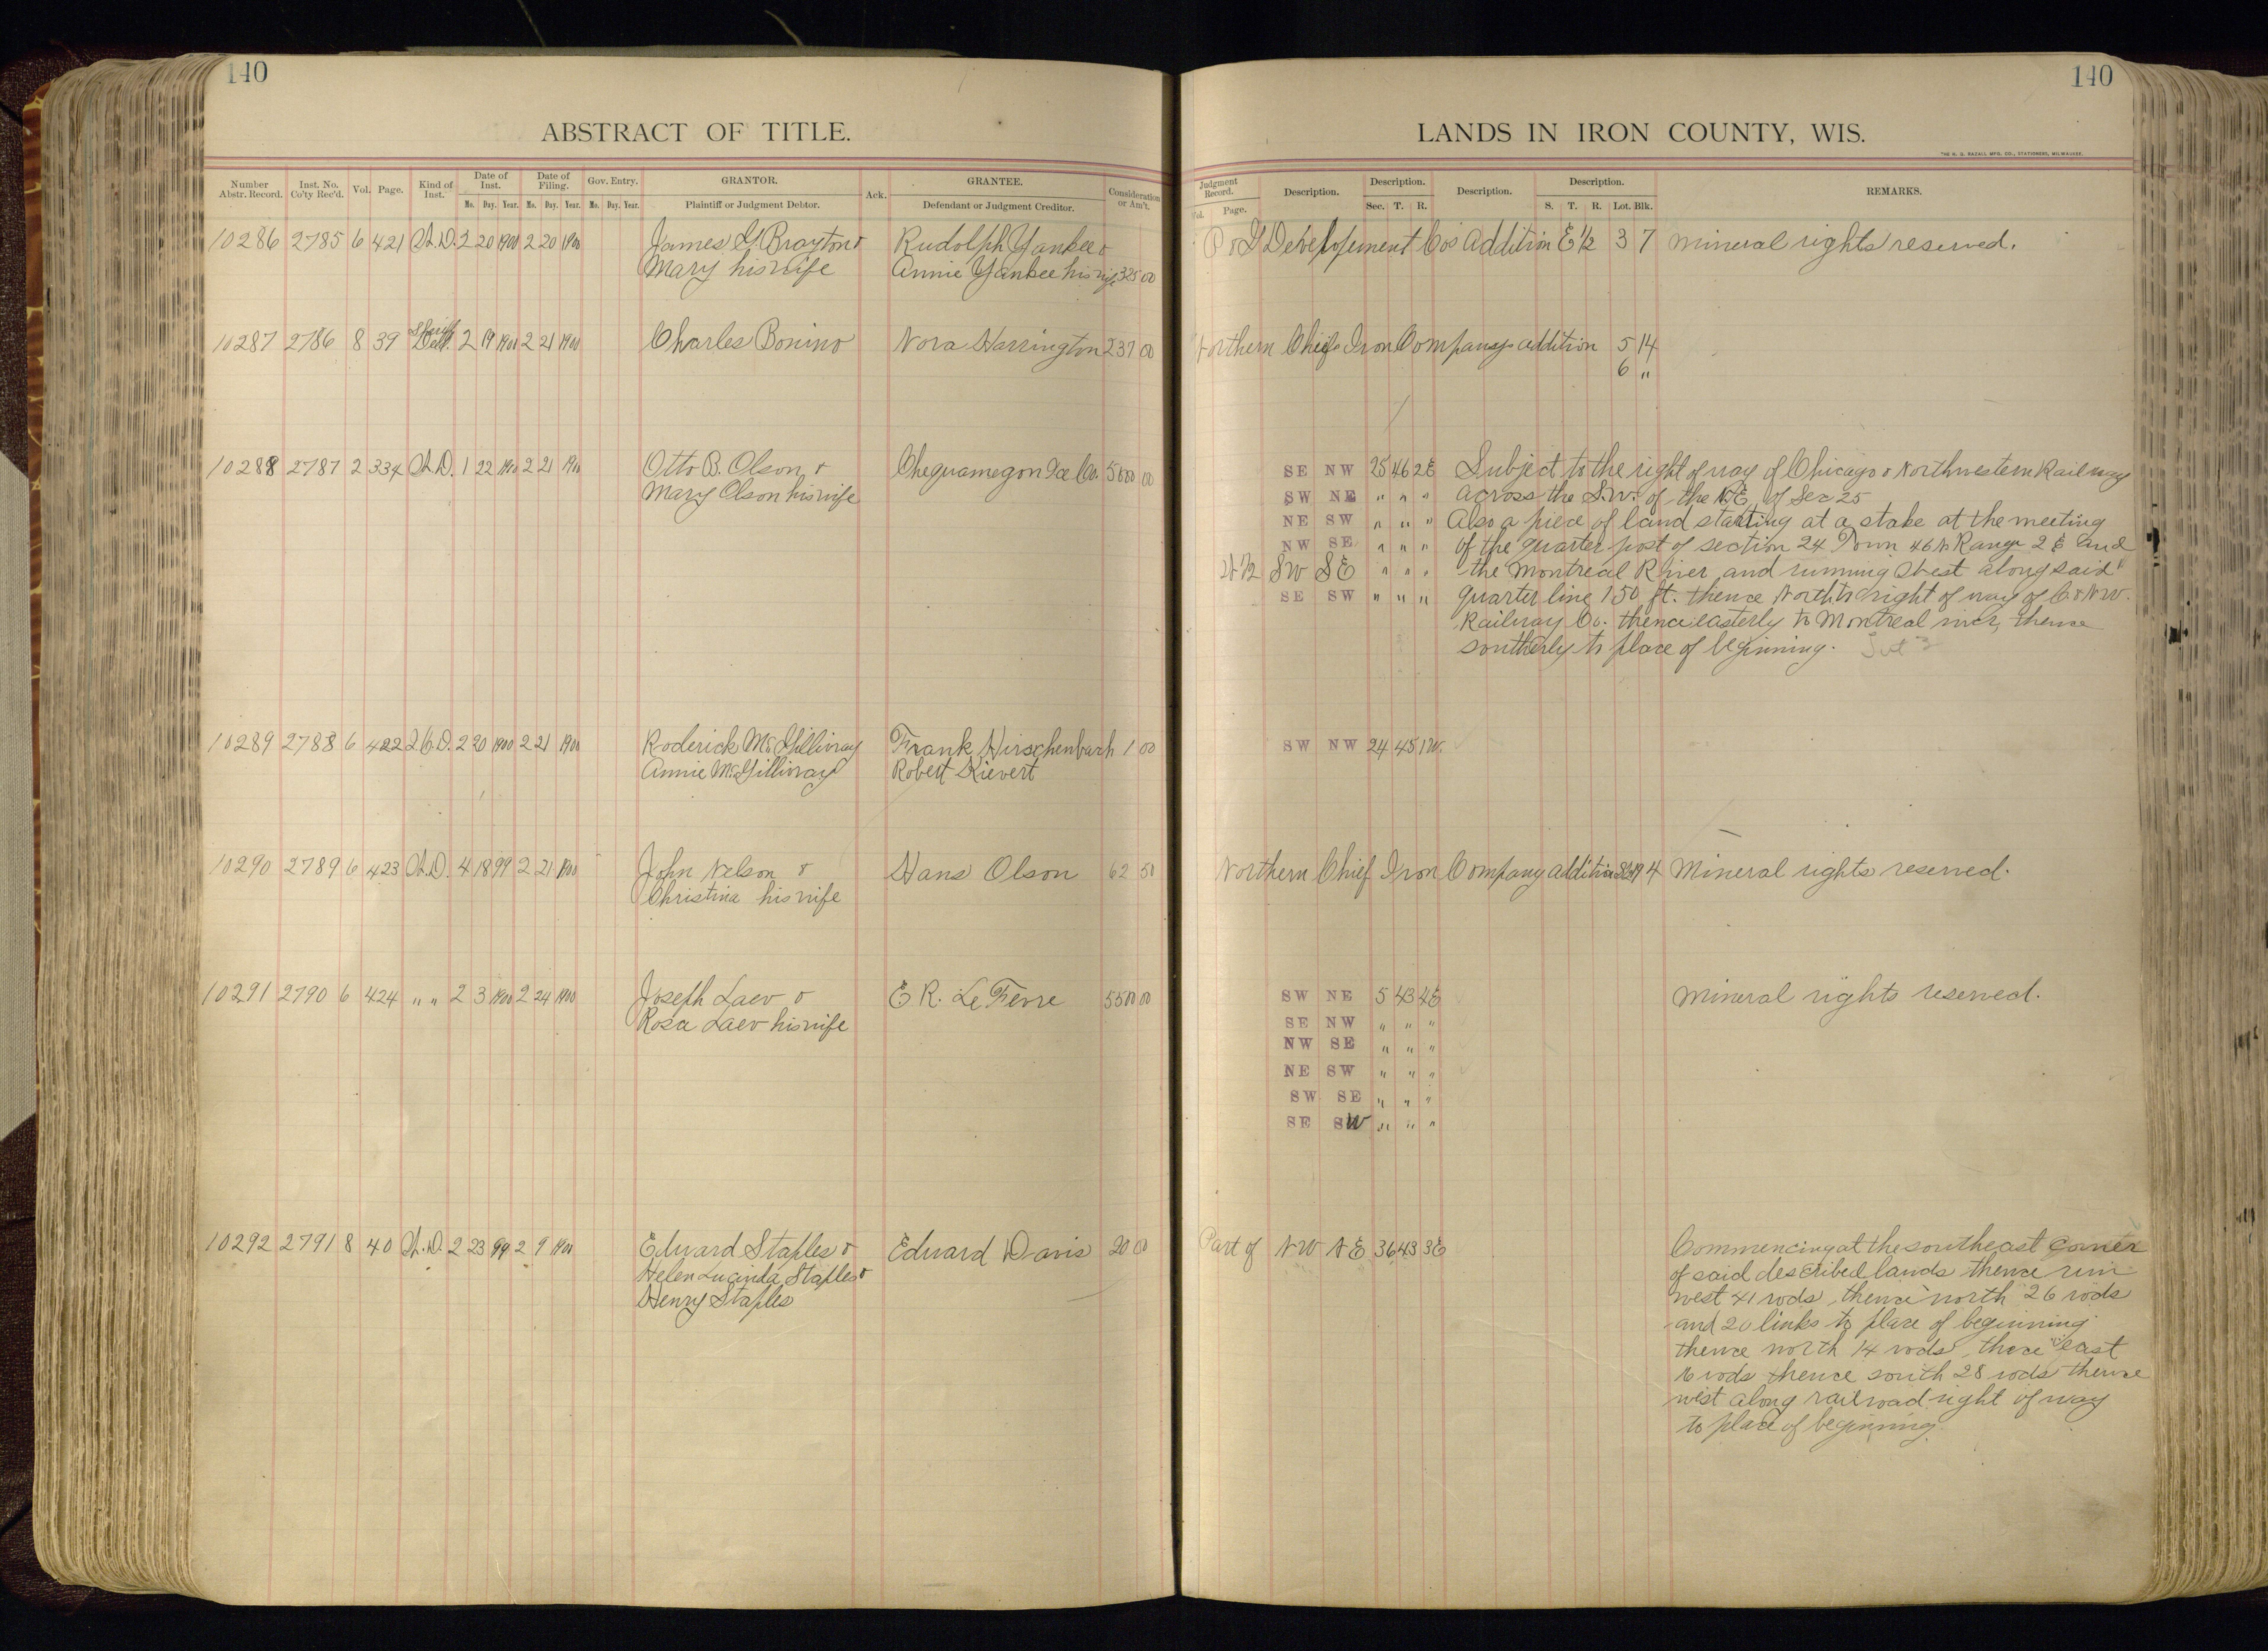 140
ABSTRACT OF TITLE.
Number Abstr. Record. Inst. No. Co'ty Rec'd. Vol. Page. Kind of Inst. Date of Inst. Date of Filing. Gov. Entry. GRANTOR. Ack. GRANTEE. Consideration or Am't.
Mo. Day. Year. Mo. Day. Year. Mo. Day. Year. Plaintiff or Judgment Debtor. Defendant or Judgment Creditor.
10286 2785 6 421 W.D. 2 20 1900 2 20 1900 James G. Brayton & Rudolph Yankee &
Mary his wife Annie Yankee his wife 325 00
10287 2786 8 39 Sheriff Deed. 2 19 1900 2 21 1900 Charles Bonino Nora Harrington 237 00
10288 2787 2 334 W.D. 1 22 1900 2 21 1900 Otto B. Olson & Chequamegon Ice Co. 5000 00
Mary Olson his wife
10289 2788 6 422 Q.C.D. 2 20 1900 2 21 1900 Roderick McGillivray Frank Hirschenbach 1 00
Annie McGillivray Robert Kievert
10290 2789 6 423 W.D. 4 18 99 2 21 1900 John Nelson & Hans Olson 62 50
Christina his wife
10291 2790 6 424 " " 2 3 1900 2 24 1900 Joseph Laev & E R. Le Fevre 5500 00
Rosa Laev his wife
10292 2791 8 40 W.D. 2 23 99 2 9 1900 Edward Staples & Edward Davis 20 00
Helen Lucinda Staples &
Henry Staples
140
LANDS IN IRON COUNTY, WIS.
Judgment Record. Description. Description. Description. Description. REMARKS.
Vol. Page. Sec. T. R. S. T. R. Lot. Blk.
P & G Developement Co's Addition E ½ 3 7 Mineral rights reserved.
Northern Chief Iron Companys addition 5 14
6 "
SE NW 25 46 2E Subject to the right of way of Chicago & Northwestern Railway
SW NE " " " across the S.W. of the N.E. of Sec 25
NE SW " " " Also a piece of land starting at a stake at the meeting
NW SE " " " of the quarter post of section 24 Town 46 N Range 2 E and
W ½ SW SE " " " the Montreal River and running West along said
SE SW " " " quarter line 150 ft. thence North to right of way of C & N W.
Railway Co. thence easterly to Montreal river, thence
southerly to place of beginning.
SW NW 24 45 1W.
Northern Chief Iron Company addition 4 Mineral rights reserved.
SW NE 5 43 4E Mineral rights reserved.
SE NW " " "
NW SE " " "
NE SW " " "
SW SE " " "
SE SW " " "
Part of NW NE 36 43 3E Commencing at the southeast corner
of said described lands thence run
west 41 rods, thence north 26 rods
and 20 links to place of beginning
thence north 14 rods, thence east
16 rods thence south 28 rods thence
west along railroad right of way
to place of beginning.